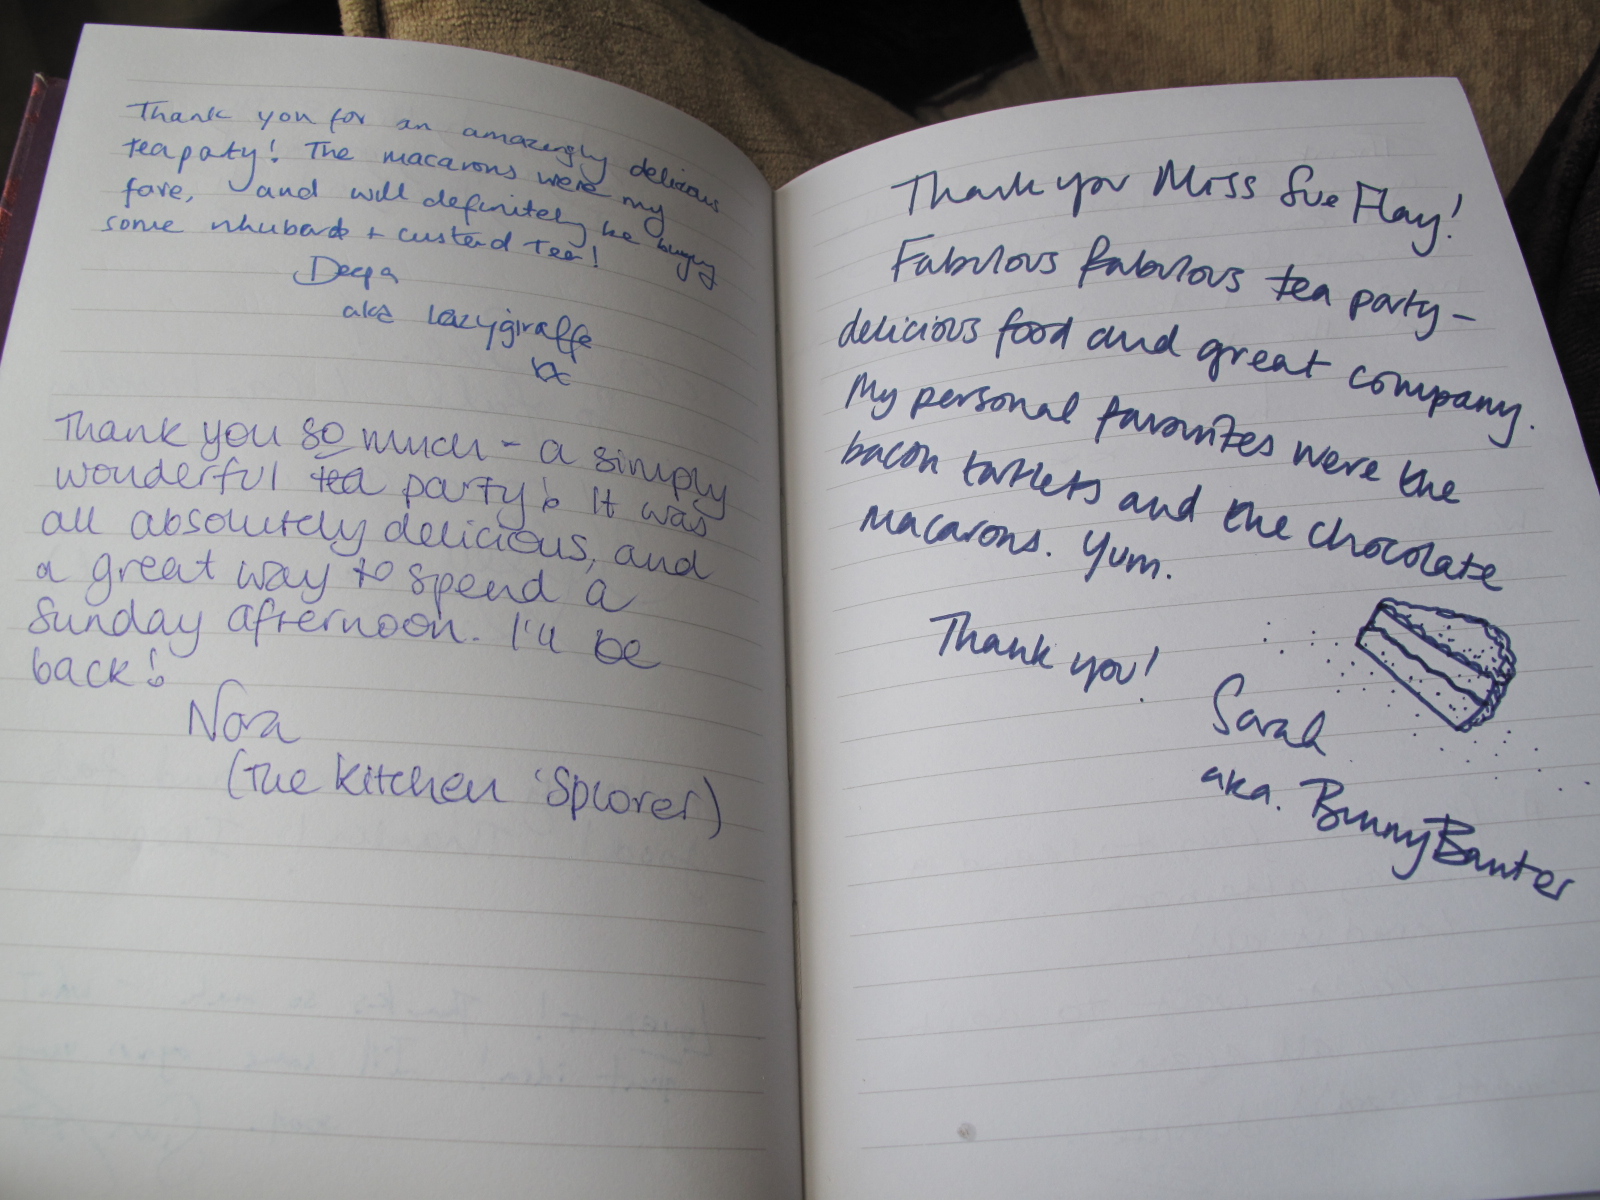 Thank you for an amazingly delicious
teaparty! The macarons were my
fave, and will definitely be buying
some rhubarb + custard tea!
Deepa
aka lazygiraffe
xx
Thank you so much - a simply
wonderful tea party! It was
all absolutely delicious, and
a great way to spend a
Sunday afternoon. I'll be
back!
Nora
(The Kitchen 'Splorer)
Thank you Miss Sue Flay!
Fabulous fabulous tea party -
delicious food and great company.
My personal favourites were the
bacon tartlets and the chocolate
macarons. Yum.
Thank you!
Sarah
aka. BunnyBanter